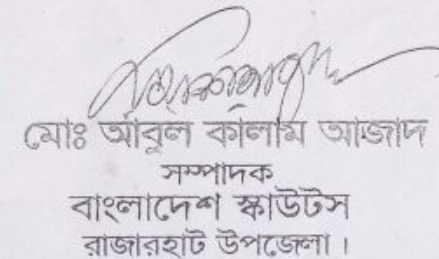 মোঃ আবুল কালাম আজাদ
সম্পাদক
বাংলাদেশ স্কাউটস
রাজারহাট উপজেলা।